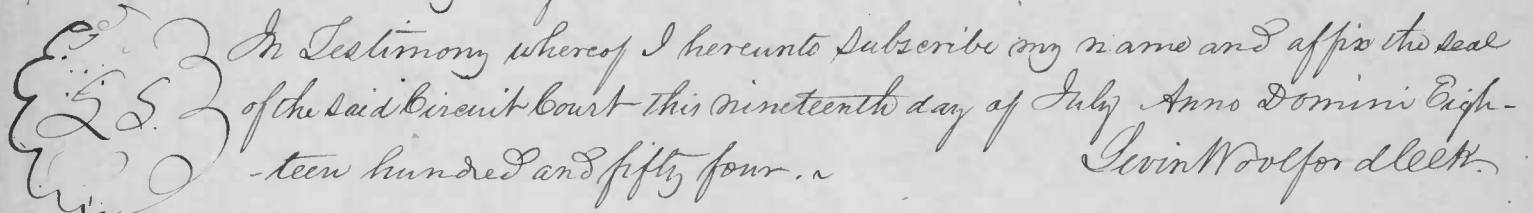 In Testimony whereof I hereunto Subscribe my name and affix the seal
L S. of the said Circuit Court this nineteenth day of July Anno Domini Eigh-
-teen hundred and fifty four. ~ Levin Woolford Clerk.